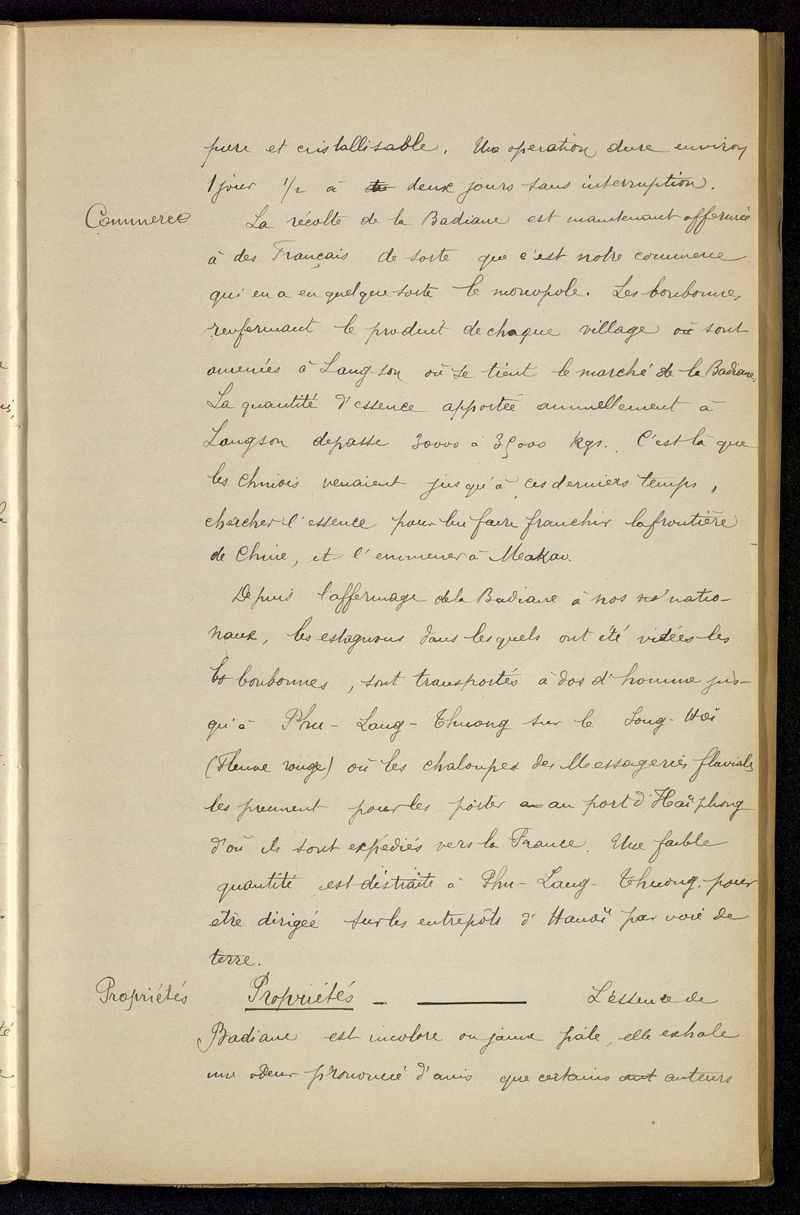 pure et cristallisable. Une opération dure environ
1 jour 1/2 à deux jours sans interruption.
Commerce
La récolte de la Badiane est maintenant affermée
à des Français de sorte que c'est notre commerce
qui en a en quelque sorte le monopole. Les bonbonnes
renfermant le produit de chaque village où sont
amenées à Lang-son où se tient le marché de la Badiane.
La quantité d'essence apportée annuellement à
Langson dépasse 30000 à 35000 kgs. C'est là que
les chinois venaient jusqu'à ces derniers temps,
chercher l'essence pour lui faire franchir la frontière
de Chine, et l'emmener à Makao.
Depuis l'affermage de la Badiane à nos natio-
naux, les estagnons dans lesquels ont été vidées les
bonbonnes, sont transportés à dos d'homme jus-
qu'à Phu-Lang-Thuong sur le Song-Koï
(Fleuve rouge) où les chaloupes des Messageries fluviales
les prennent pour les porter au port d'Haïphong
d'où ils sont expédiés vers la France. Une faible
quantité est distraite à Phu-Lang-Thuong pour
etre dirigée sur les entrepôts d'Hanoï par voie de
terre.
Propriétés
Propriétés - — L'essence de
Badiane est incolore ou jaune pâle, elle exhale
une odeur prononcé d'anis que certains aut auteurs